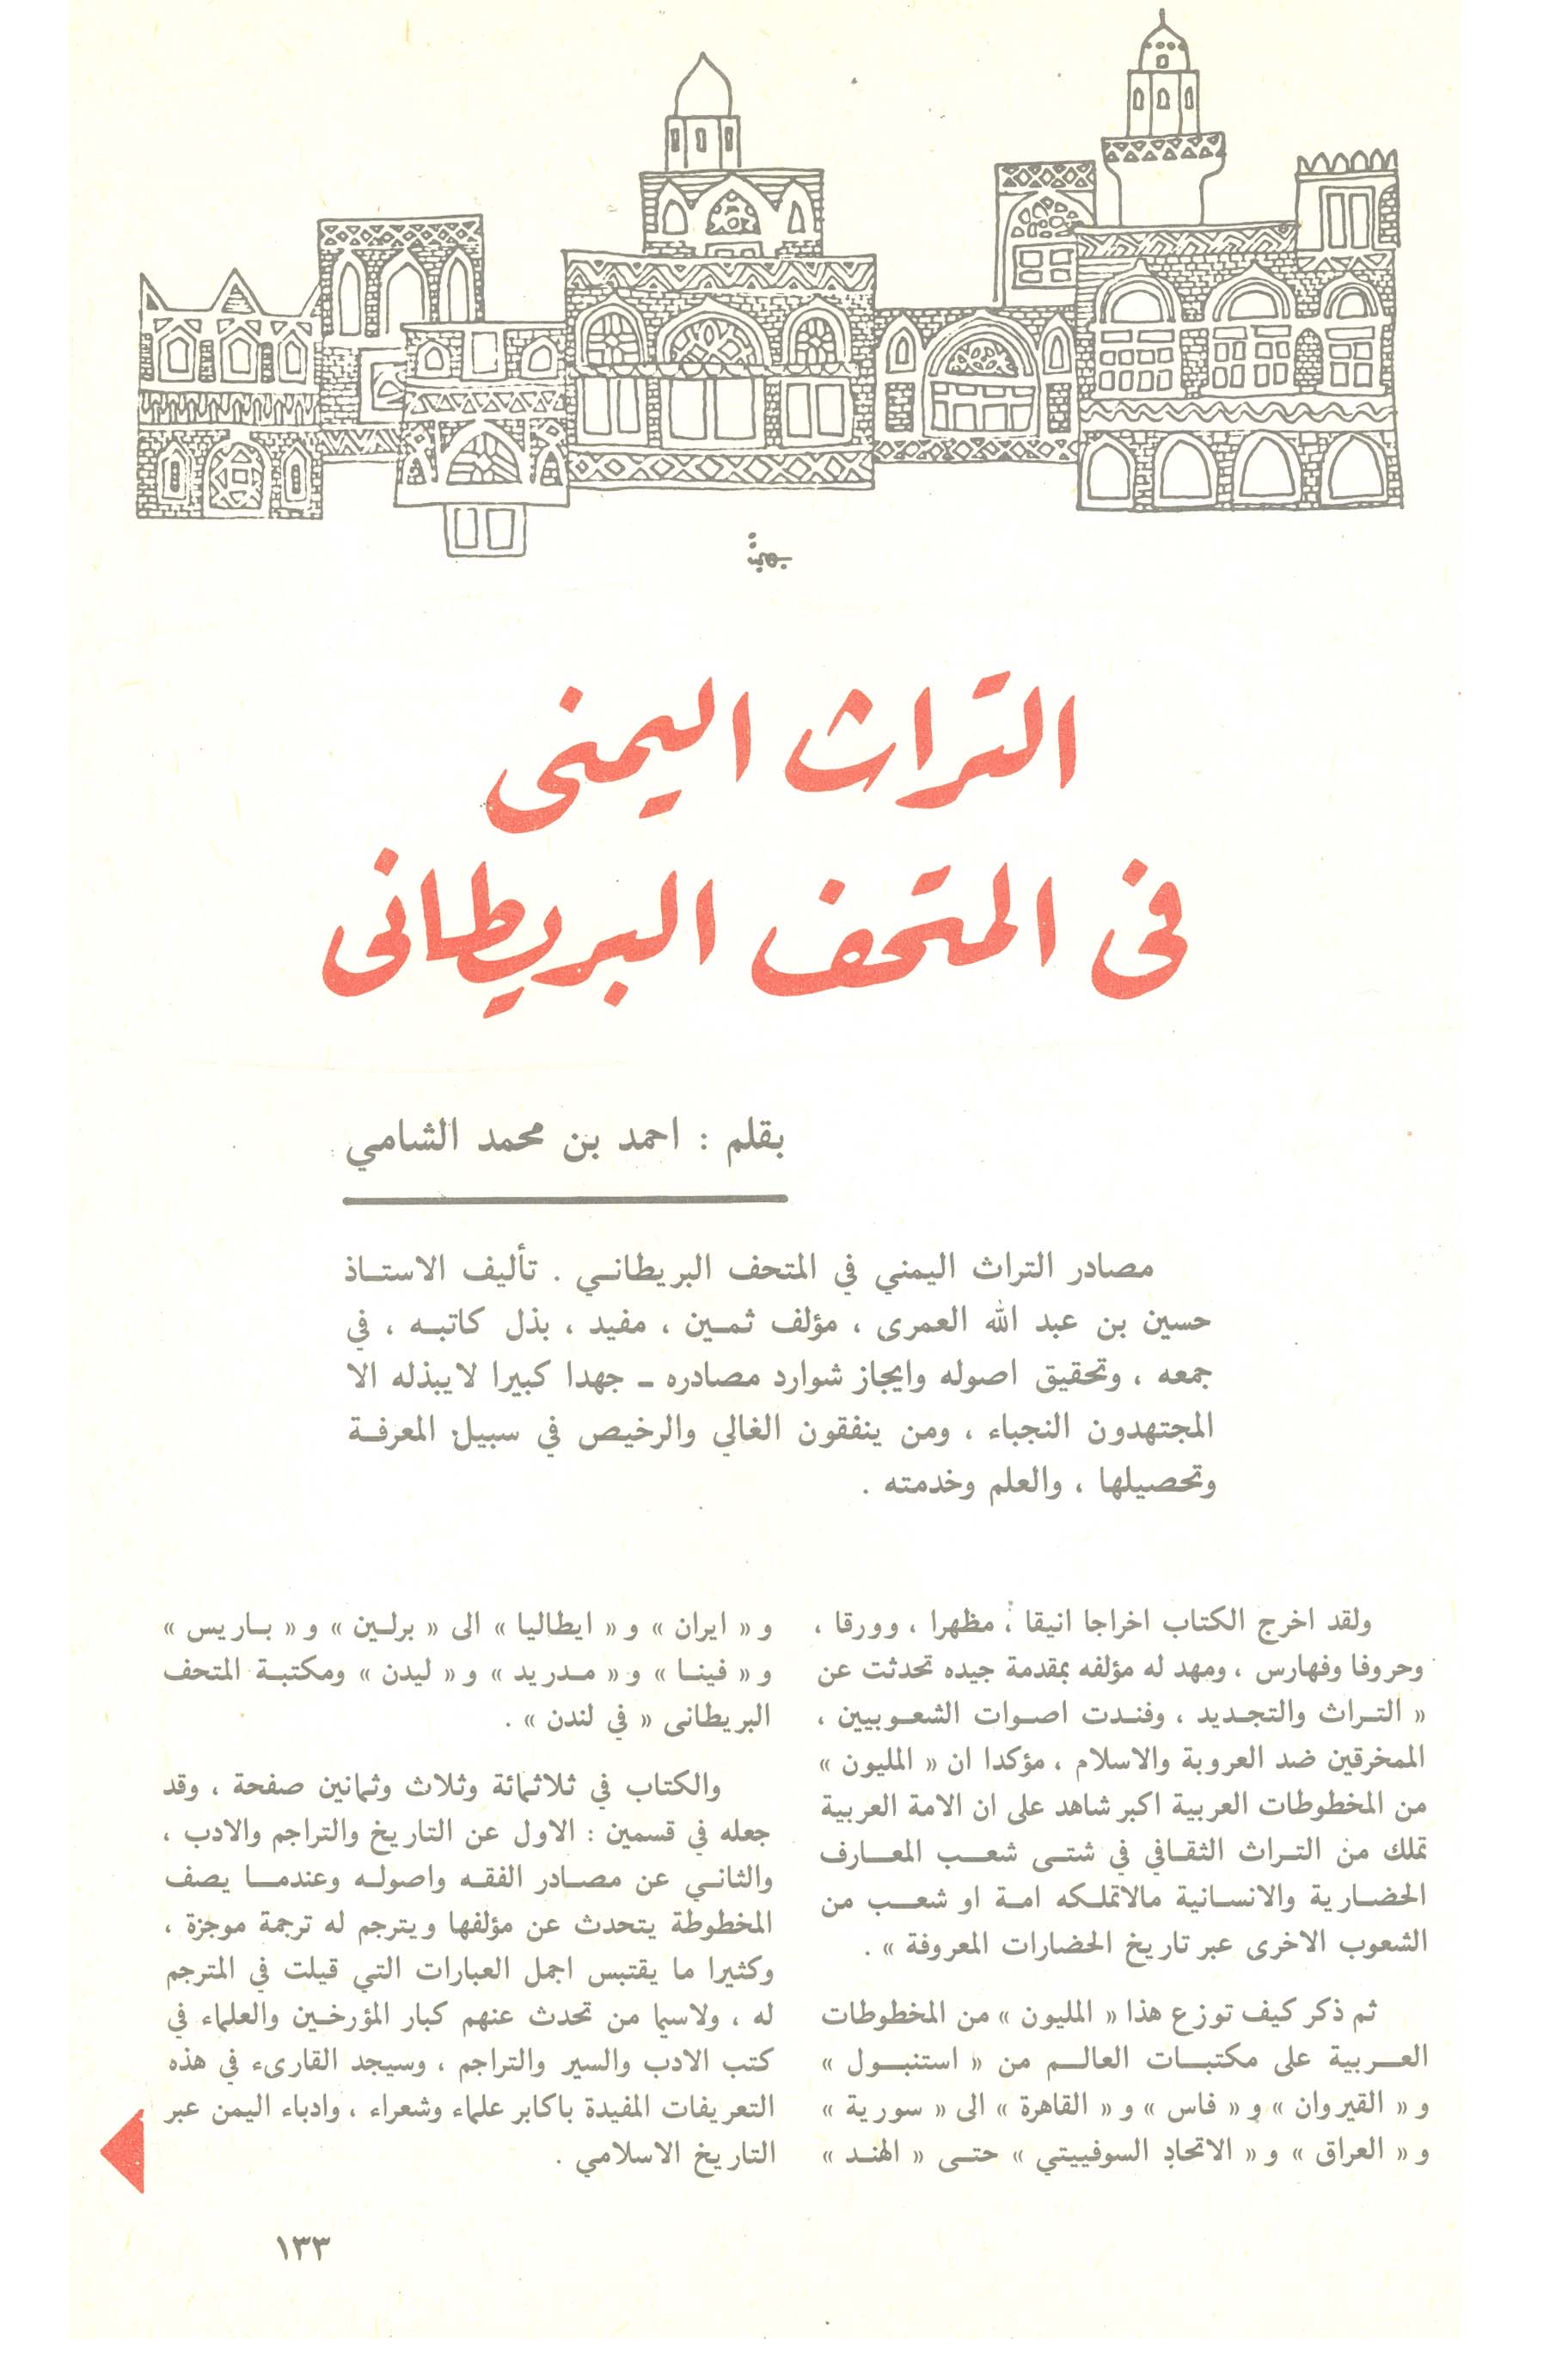 التراث اليمنى
فى المتحف البريطانى
بقلم : احمد بن محمد الشامي
مصادر التراث اليمني في المتحف البريطانـي . تأليف الاستـاذ
حسين بن عبد الله العمرى ، مؤلف ثمـين ، مفيد ، بذل كاتبـه ، في
جمعه ، وتحقيق اصوله وايجاز شوارد مصادره ـ جهدا كبيرا لايبذله الا
المجتهدون النجباء ، ومن ينفقون الغالي والرخيص في سبيل المعرفـة
وتحصيلها ، والعلم وخدمته .
ولقد اخرج الكتاب اخراجا انيقا ، مظهرا ، وورقا ،
وحروفا وفهارس ، ومهد له مؤلفه بمقدمة جيده تحدثت عن
« التـراث والتجـديد ، وفنـدت اصـوات الشعـوبيين ،
الممخرقين ضد العروبة والاسلام ، مؤكدا ان « المليون »
من المخطوطات العربية اكبر شاهد على ان الامة العربية
تملك من التـراث الثقـافي في شتـى شعـب المعـارف
الحضـارية والانسـانية مالاتملـكه امـة او شعـب من
الشعوب الاخرى عبر تاريخ الحضارات المعروفة » .
ثم ذكر كيف توزع هذا « المليون » من المخطوطات
العـربية على مكتبـات العالـم من « استنبـول »
و « القيروان » و « فاس » و « القاهرة » الى « سورية »
و « العراق » و « الاتحاد السوفييتي » حتـى « الهنـد »
و « ايران » و « ايطاليا » الى « برلـين » و « بـاريس »
و « فينـا » و « مـدريد » و « ليدن » ومكتبـة المتحف
البريطانى « في لندن » .
والكتاب في ثلاثمائة وثلاث وثمانين صفحة ، وقد
جعله في قسمين : الاول عن التاريخ والتراجم والادب ،
والثانـي عن مصـادر الفقـه واصولـه وعندمـا يصف
المخطوطة يتحدث عن مؤلفها ويترجم له ترجمة موجزة ،
وكثيرا ما يقتبس اجمل العبارات التي قيلت في المترجم
له ، ولاسيما من تحدث عنهم كبار المؤرخـين والعلماء في
كتب الادب والسير والتراجم ، وسيجد القارىء في هذه
التعريفات المفيدة باكابر علماء وشعراء ، وادباء اليمن عبر
التاريخ الاسلامي .
١٣٣